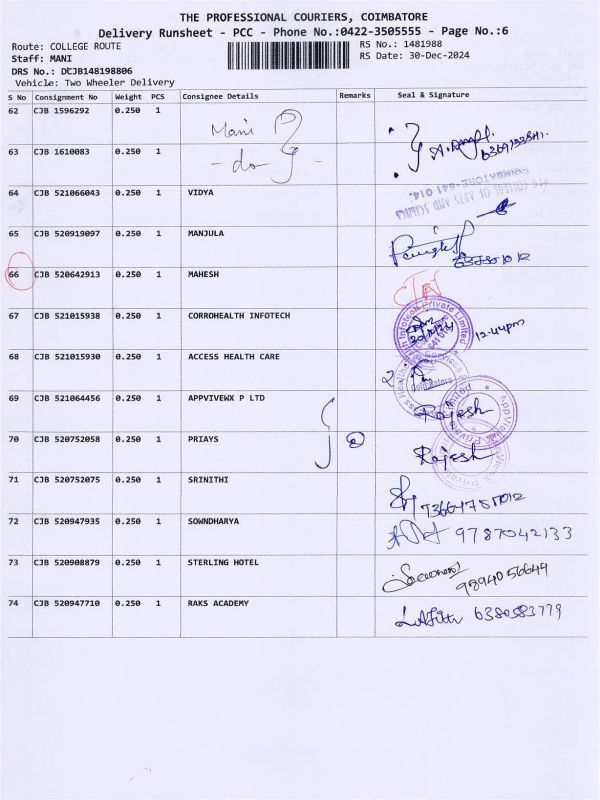 THE PROFESSIONAL COURIERS, COIMBATORE
Delivery Runsheet - PCC - Phone No.:0422-3505555 - Page No.:6
Route: COLLEGE ROUTE
RS No.: 1481988
Staff: MANI
RS Date: 30-Dec-2024
DRS No.: DCJB148198806
Vehicle: Two Wheeler Delivery
S No Consignment No Weight PCS Consignee Details Remarks Seal & Signature
62 CJB 1596292 0.250 1 Mani
63 CJB 1610083 0.250 1 - do -
64 CJB 521066043 0.250 1 VIDYA
COLLEGE OF ARTS AND SCIENCE
COIMBATORE-641 014.
65 CJB 520919097 0.250 1 MANJULA
66 CJB 520642913 0.250 1 MAHESH
67 CJB 521015938 0.250 1 CORROHEALTH INFOTECH 12.44pm
68 CJB 521015930 0.250 1 ACCESS HEALTH CARE
69 CJB 521064456 0.250 1 APPVIVEWX P LTD Rajesh
70 CJB 520752058 0.250 1 PRIAYS Rajesh
71 CJB 520752075 0.250 1 SRINITHI
72 CJB 520947935 0.250 1 SOWNDHARYA 9787042133
73 CJB 520908879 0.250 1 STERLING HOTEL 98940 56649
74 CJB 520947710 0.250 1 RAKS ACADEMY 6380583779